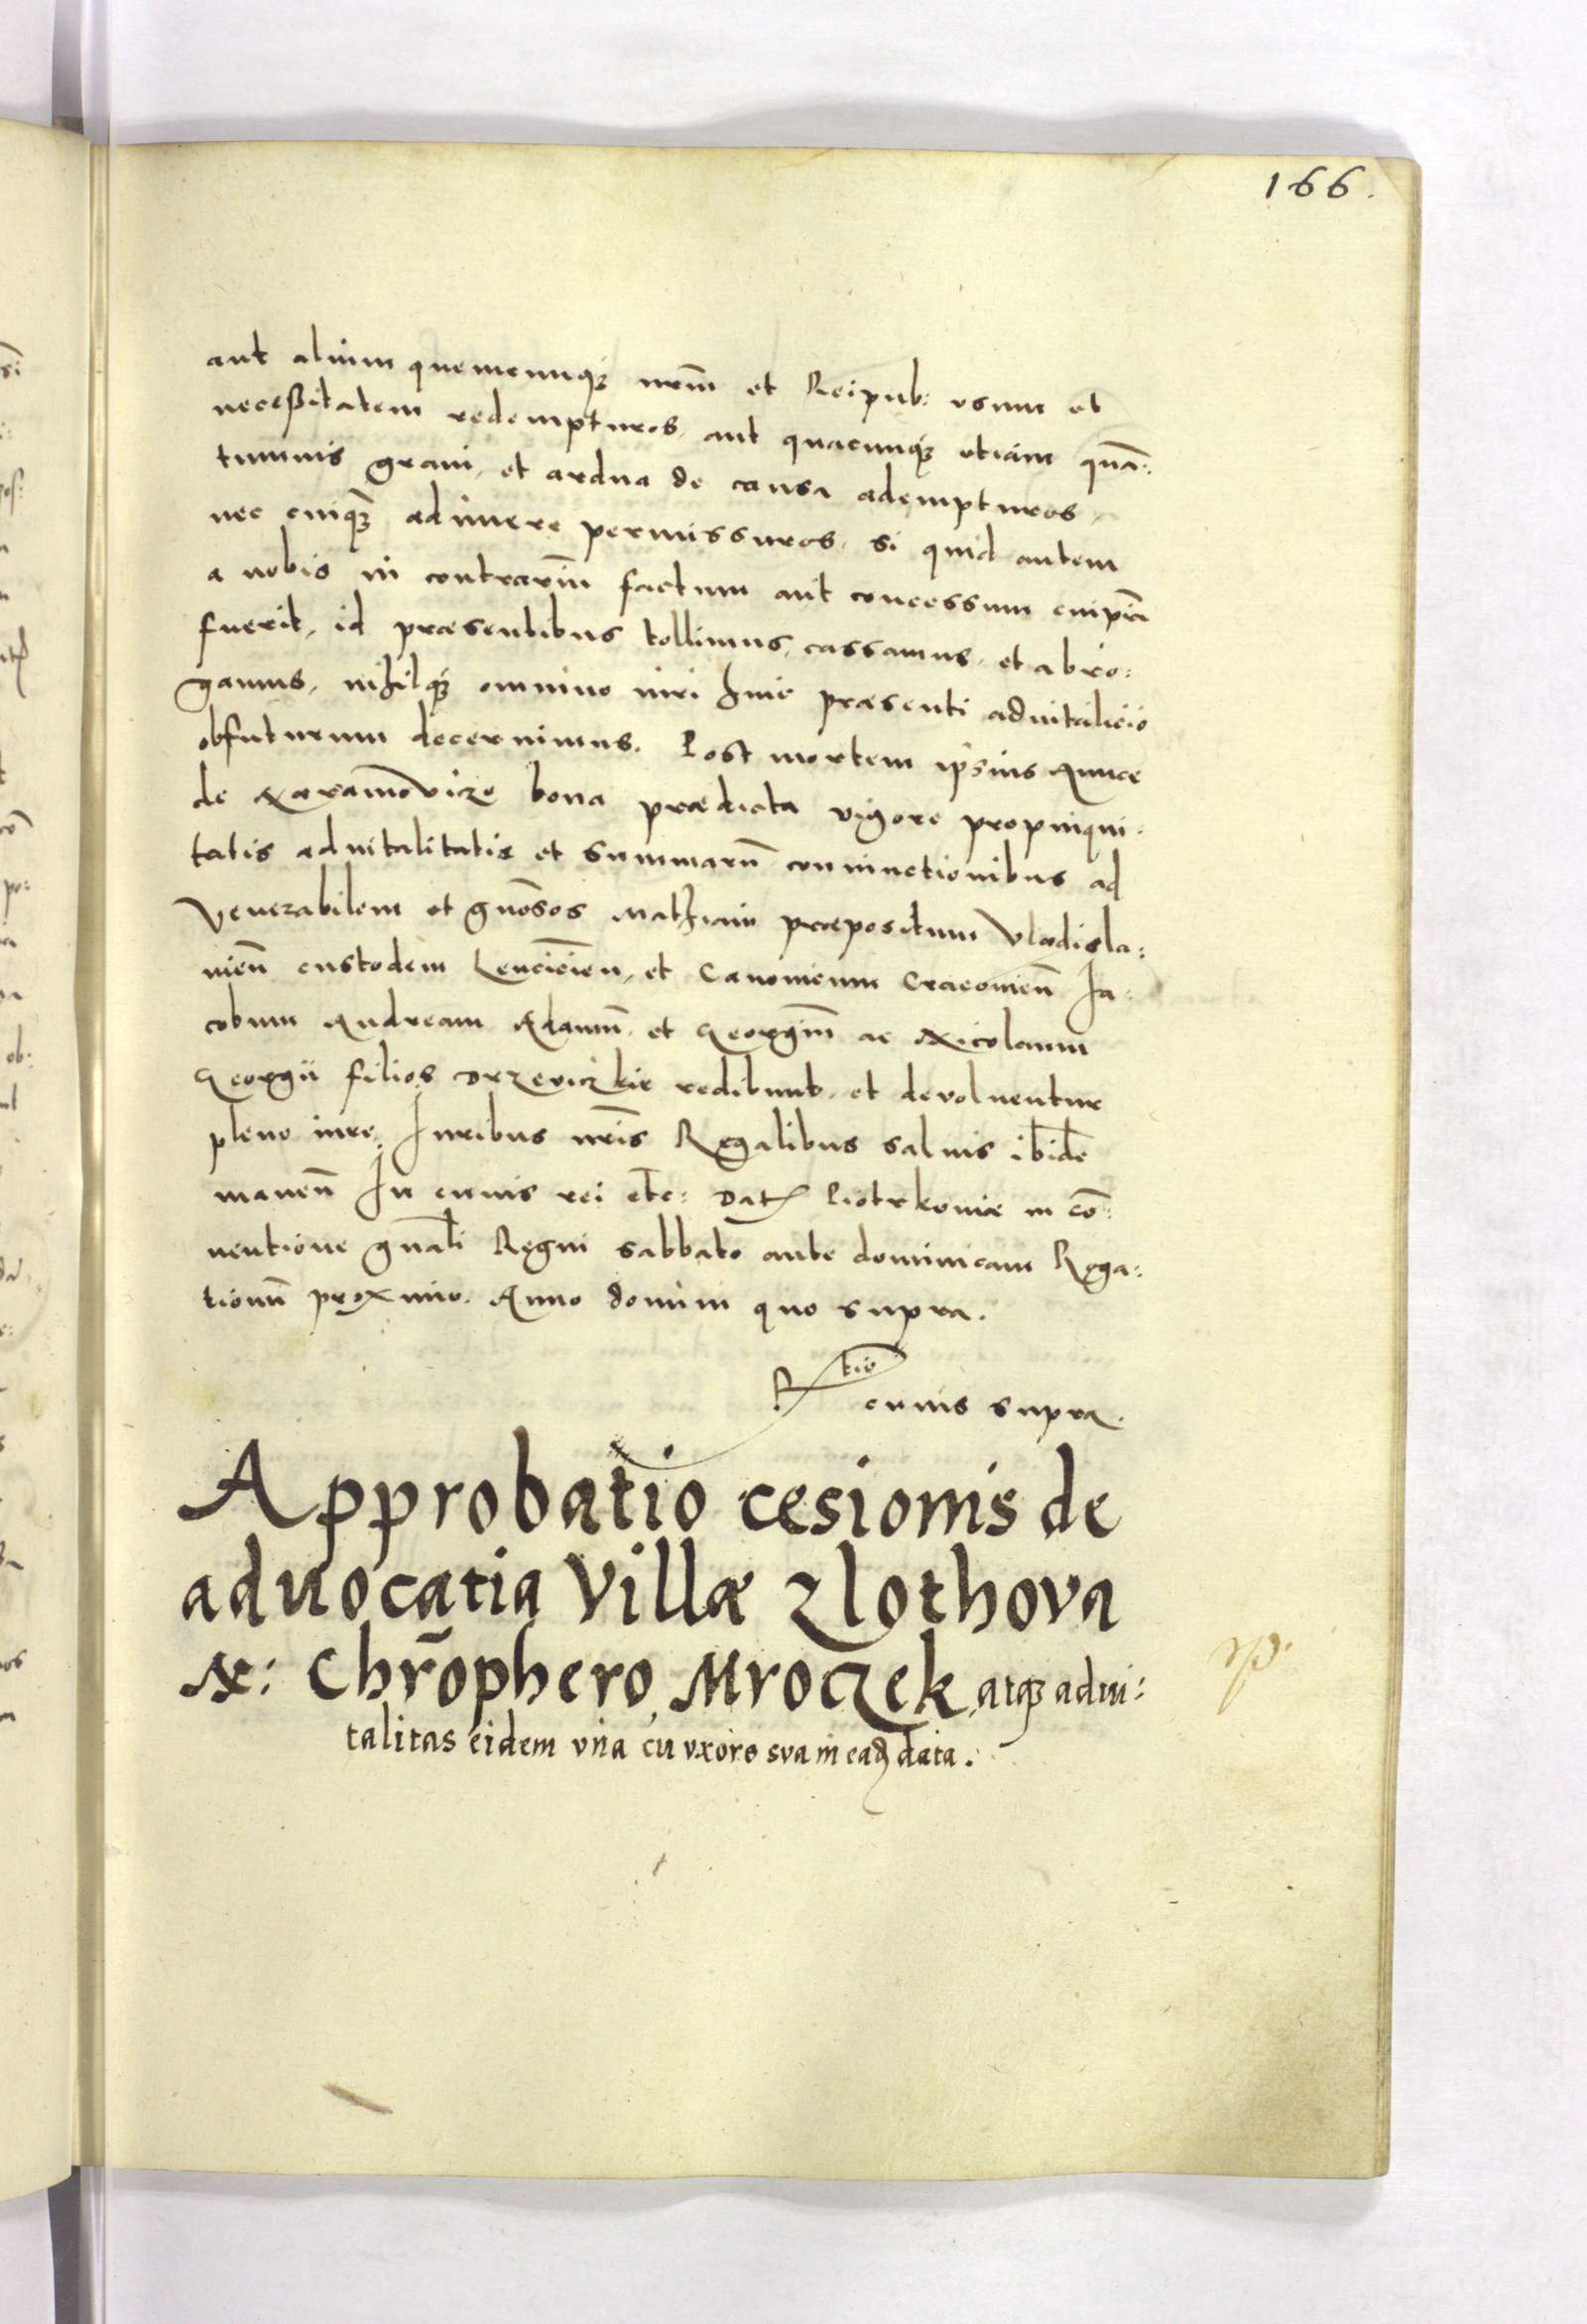 166.
aut alium quemcunq; nrm̄ et Reipub: usum et
neceßitatem redempturos, aut quacunq; etiam quā:
tumuis graui, et ardua de causa adempturos,
nec cuiq̄; adimere permissuros. si quid autem
a nobis in contrariū factum aut concessum cuipiā
fuerit, id præsentibus tollimus, cassamus, et abro:
gamus, nihilq; omnino iuri huic præsenti aduitalicio
obfuturum decernimus. Post mortem ipsius Annæ
de bona prædicta vigore propinqui:
tatis aduitalitatis et summarū coniunctionibus ad
Venerabilem et gnōsos Mathiam præpositum Vladisla:
uien̄ custodem Lencicien̄, et Canonicum Cracouien̄ Ia:
cobum Andream Adamū, et Georgiū ac Nicolaum
Georgii filios Drzeviczkie redibunt, et deuoluentur
pleno iure, Iuribus nris̄ Regalibus saluis ibidē
manen̄ In cuius rei etc: Dat Piotrkouiæ in cō:
uentione gn̄ali Regni sabbato ante dominicam Roga:
tionū proximo. Anno domini quo supra.
Rtio
cuius supra.
Approbatio cesionis de
aduocatia Villæ Zlothova
N: Chrōphero Mroczek, atq; adui:
talitas eidem vna cū vxore sva in eadē data.